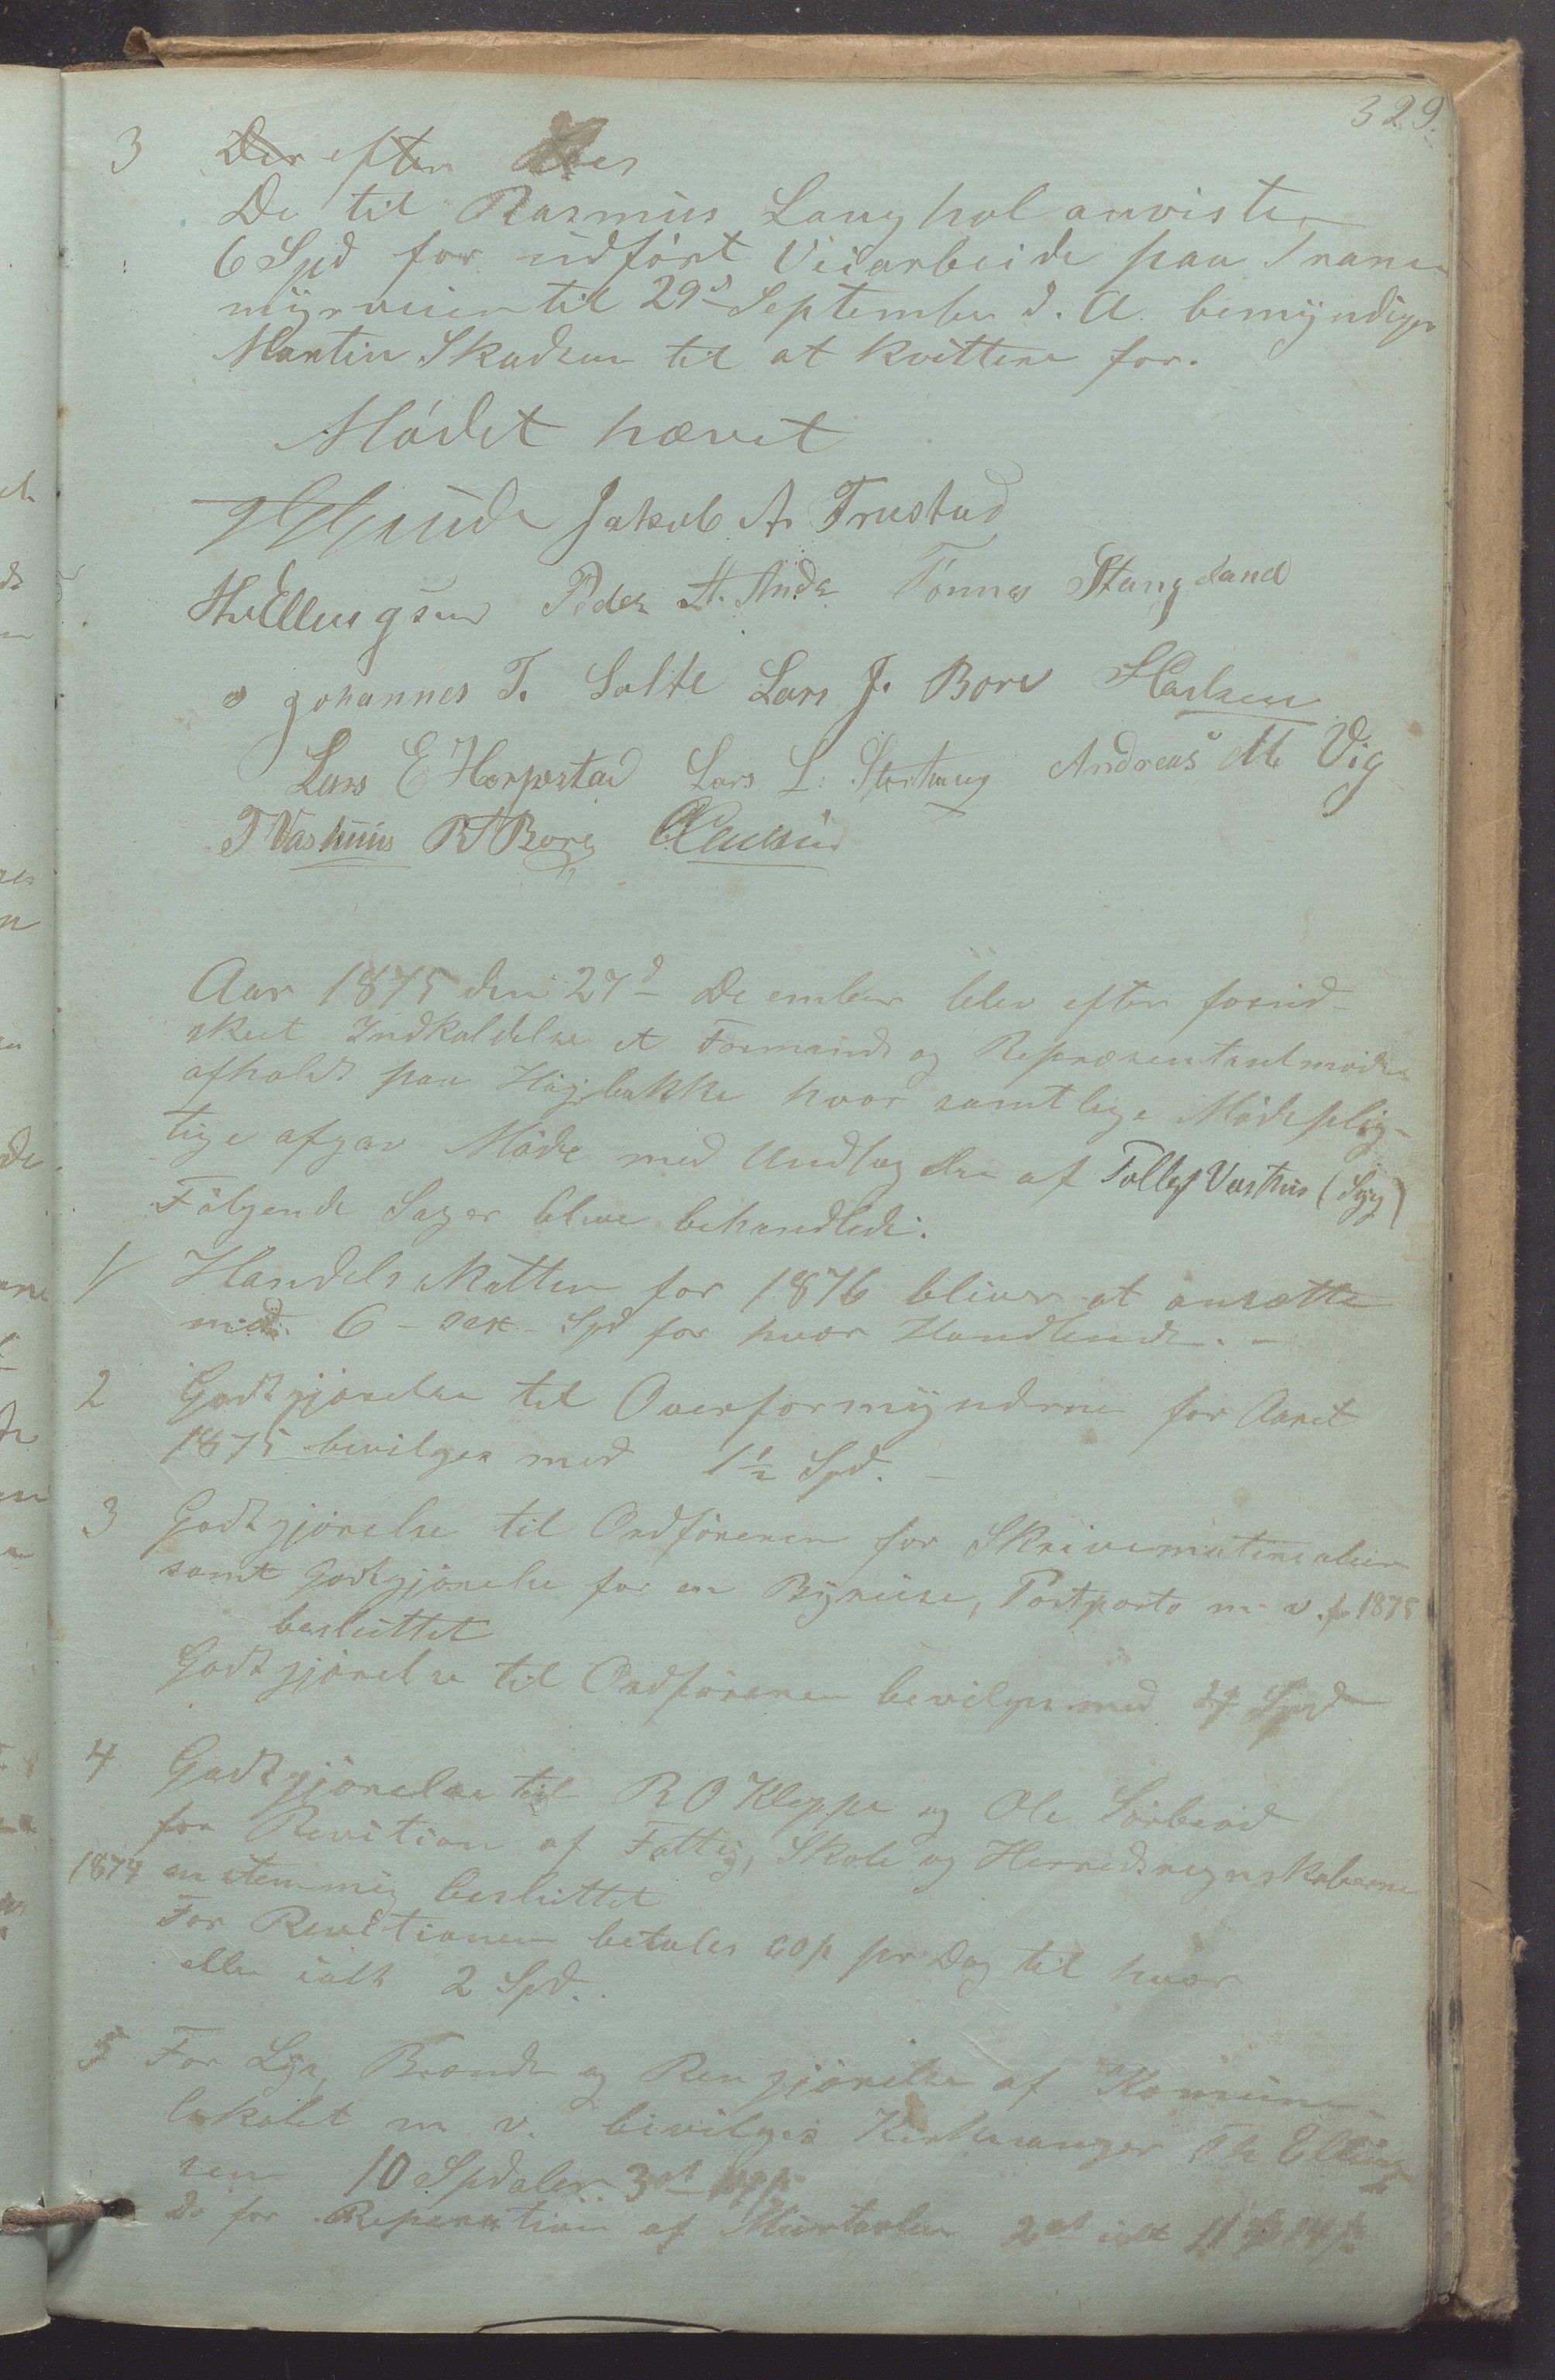 329.
3 Der efter
De til Rasmus Langhol anviste
6 Spd for udført Veiarbeide paa Trane
myrveien til 29d September d. A. bemyndiges
Martin Skadsem til at kvittere for.
Mødet hævet
Jakob A. Trustad
Th Ellingsen Peder A. Anda Tønnes Stangeland
Johannes T. Salte Lars J. Bore
Lars E Horpestad Lars L. Storhaug Andreas M Vig
T Vashuus R T Bore
Aar 1875 den 27d December blev efter forud
skeet Indkaldelse et Formands og Repræsentantmøde
afholdt paa Høgbakke hvor samtlige Mødeplig-
tige afgav Møde med Undtagelse af Tollef Vashus (Syg)
Følgende Sager bleve behandlede.
1 Handels skatten for 1876 bliver at ansætte
med 6 - sex - Spd for hver Handlende. -
2 Godtgjørelse til Overformynderne for Aaret
1875 bevilges med 1½ Spd. -
3 Godtgjørelse til Ordføreren for Skrivematerialier
samt Godtgjørelse for en Byreise, Postporto m. v. for 1875
besluttet
Godtgjørelse til Ordføreren bevilges med Spd
4 Godtgjørelse til R O Kleppe og Ole Sørbrød
for Revition af Fattig, Skole og Herredsregnskaberne
1874 enstemmig besluttet
For Revitionen betales 60 s pr Dag til hver
eller ialt 2 Spd.
5 For Lys, Brænde og Rengjørelse af Komune-
lokalet m v. bevilges Kirkesanger Th Elling
sen 10 Spdaler 3 ort
Do for Reparation af 2 ort ialt 11 14 s